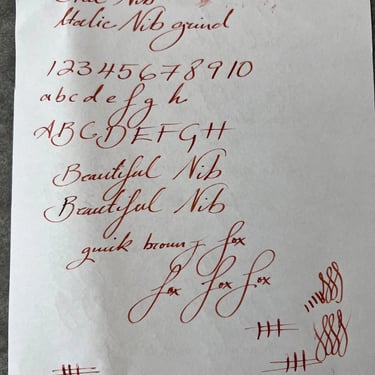 Nib
Italic Nib grind
1 2 3 4 5 6 7 8 9 10
a b c d e f g h
A B C D E F G H
Beautiful Nib
Beautiful Nib
quick brown fox
fox fox fox